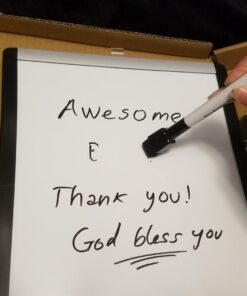 Awesome
E
Thank you!
God bless you